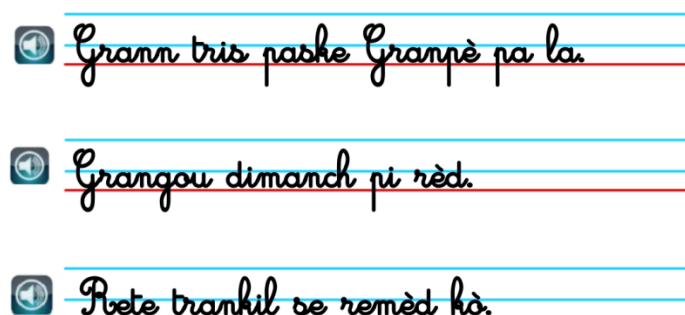 Grann tris paske Granpè pa la.
Grangou dimanch pi rèd.
Rete trankil se remèd kò.